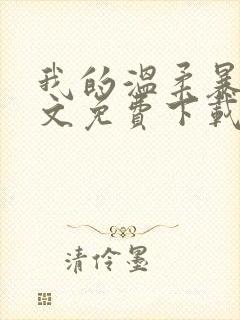 我的温柔暴
文免费下载
清伶墨